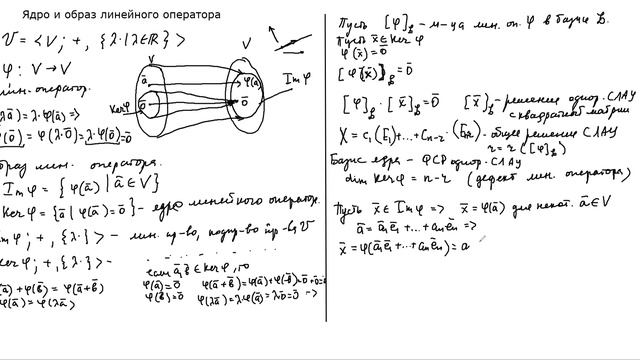 Ядро и образ линейного оператора
𝒱 = < V ; + , {λ· | λ∈ℝ} >
φ : V → V
лин. оператор.
λā) = λ·φ(ā) =>
φ(ō) = φ(λ·ō) = λ·φ(ō) = ō
V
ā
ō
Kerφ
V
φ(ā)
ō
Imφ
браз лин. оператора.
Imφ = { φ(ā) | ā ∈ V }
Kerφ = {ā | φ(ā) = ō} - ядро линейного оператора.
mφ ; + , {λ·} > - лин. пр-во, подпр-во пр-ва 𝒱
Kerφ ; + , {λ·} > -
ā) + φ(b̄) = φ(ā+b̄)
φ(ā) = φ(λā)
если ā, b̄ ∈ Kerφ, то
φ(ā) = ō φ(ā+b̄) = φ(ā) + φ(b̄) = ō + ō = ō
φ(b̄) = ō φ(λā) = λφ(ā) = λō = ō =>
Пусть [φ]_B - м-ца лин. оп. φ в базисе B.
Пусть x̄ ∈ Kerφ
φ(x̄) = ō
[φ(x̄)]_B = ō
[φ]_B · [x̄]_B = ō [x̄]_B - решение однор. СЛАУ
с квадратной матриц
X = c₁(E₁) + ... + c_{n-r}·(E_{n-r}) - общее решение СЛАУ
r = r([φ]_B)
Базис ядра - ФСР однор. СЛАУ
dim Kerφ = n - r (дефект лин. оператора)
Пусть x̄ ∈ Imφ => x̄ = φ(ā) для некот. ā ∈ V
ā = a₁ē₁ + ... + aₙēₙ =>
x̄ = φ(a₁ē₁ + ... + aₙēₙ) = a